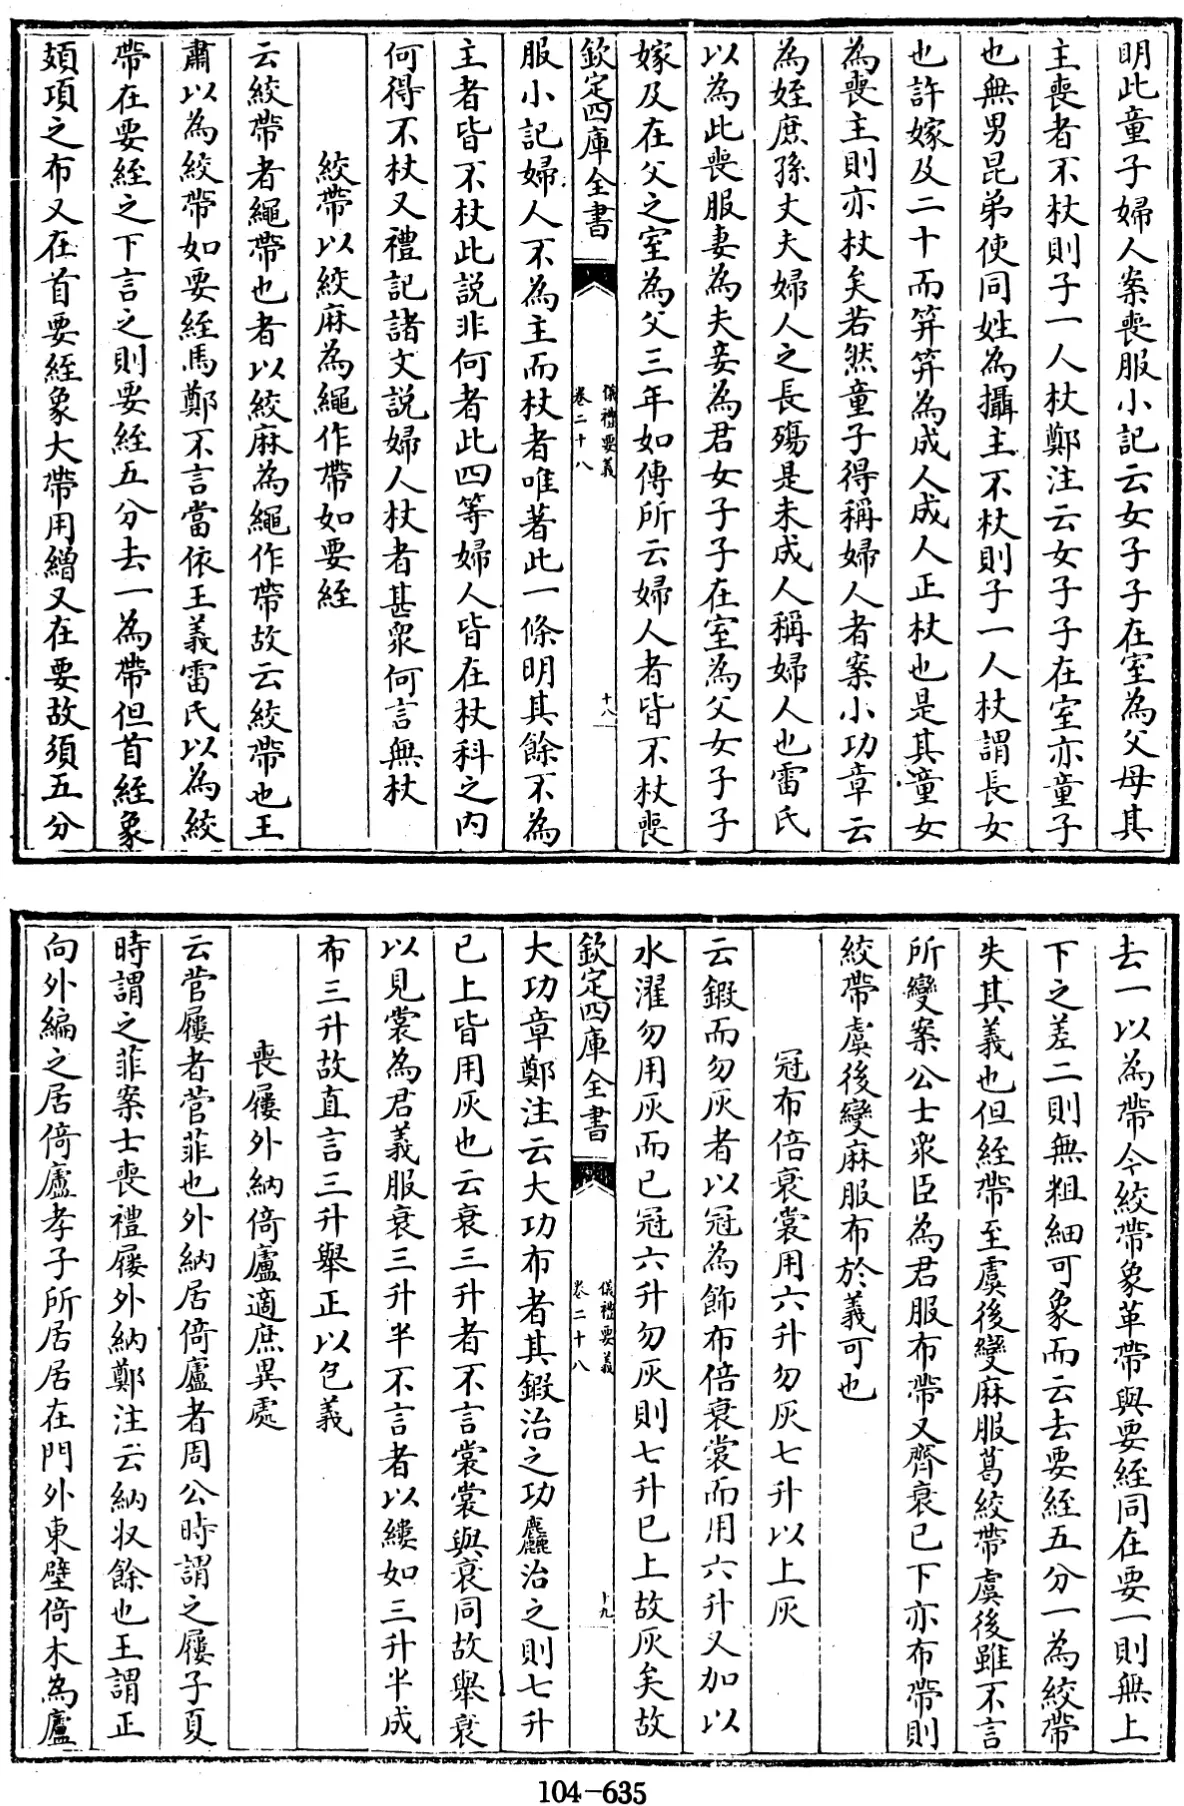 明此童子婦人案喪服小記云女子子在室為父母其
主喪者不杖則子一人杖鄭注云女子子在室亦童子
也無男昆弟使同姓為攝主不杖則子一人杖謂長女
也許嫁及二十而筓筓為成人成人正杖也是其童女
為喪主則亦杖矣若然童子得稱婦人者案小功章云
為姪庶孫丈夫婦人之長殤是未成人稱婦人也雷氏
以為此喪服妻為夫妾為君女子子在室為父女子子
嫁及在父之室為父三年如傳所云婦人者皆不杖喪
欽定四庫全書
儀禮要義
卷二十八
十八
服小記婦人不為主而杖者唯著此一條明其餘不為
主者皆不杖此説非何者此四等婦人皆在杖科之内
何得不杖又禮記諸文説婦人杖者甚衆何言無杖
絞帶以絞麻為繩作帶如要絰
云絞帶者繩帶也者以絞麻為繩作帶故云絞帶也王
肅以為絞帶如要絰馬鄭不言當依王義雷氏以為絞
帶在要絰之下言之則要絰五分去一為帶但首絰象
頍項之布又在首要絰象大帶用繒又在要故須五分
去一以為帶今絞帶象革帶與要絰同在要一則無上
下之差二則無粗細可象而云去要絰五分一為絞帶
失其義也但絰帶至虞後變麻服葛絞帶虞後雖不言
所變案公士衆臣為君服布帶又齊衰已下亦布帶則
絞帶虞後變麻服布於義可也
冠布倍衰裳用六升勿灰七升以上灰
云鍛而勿灰者以冠為飾布倍衰裳而用六升又加以
水濯勿用灰而已冠六升勿灰則七升已上故灰矣故
欽定四庫全書
儀禮要義
卷二十八
十九
大功章鄭注云大功布者其鍛治之功麤治之則七升
已上皆用灰也云衰三升者不言裳裳與衰同故舉衰
以見裳為君義服衰三升半不言者以縷如三升半成
布三升故直言三升舉正以包義
喪屨外納倚廬適庶異處
云菅屨者菅菲也外納居倚廬者周公時謂之屨子夏
時謂之菲案士喪禮屨外納鄭注云納收餘也王謂正
向外編之居倚廬孝子所居居在門外東壁倚木為廬
104-635